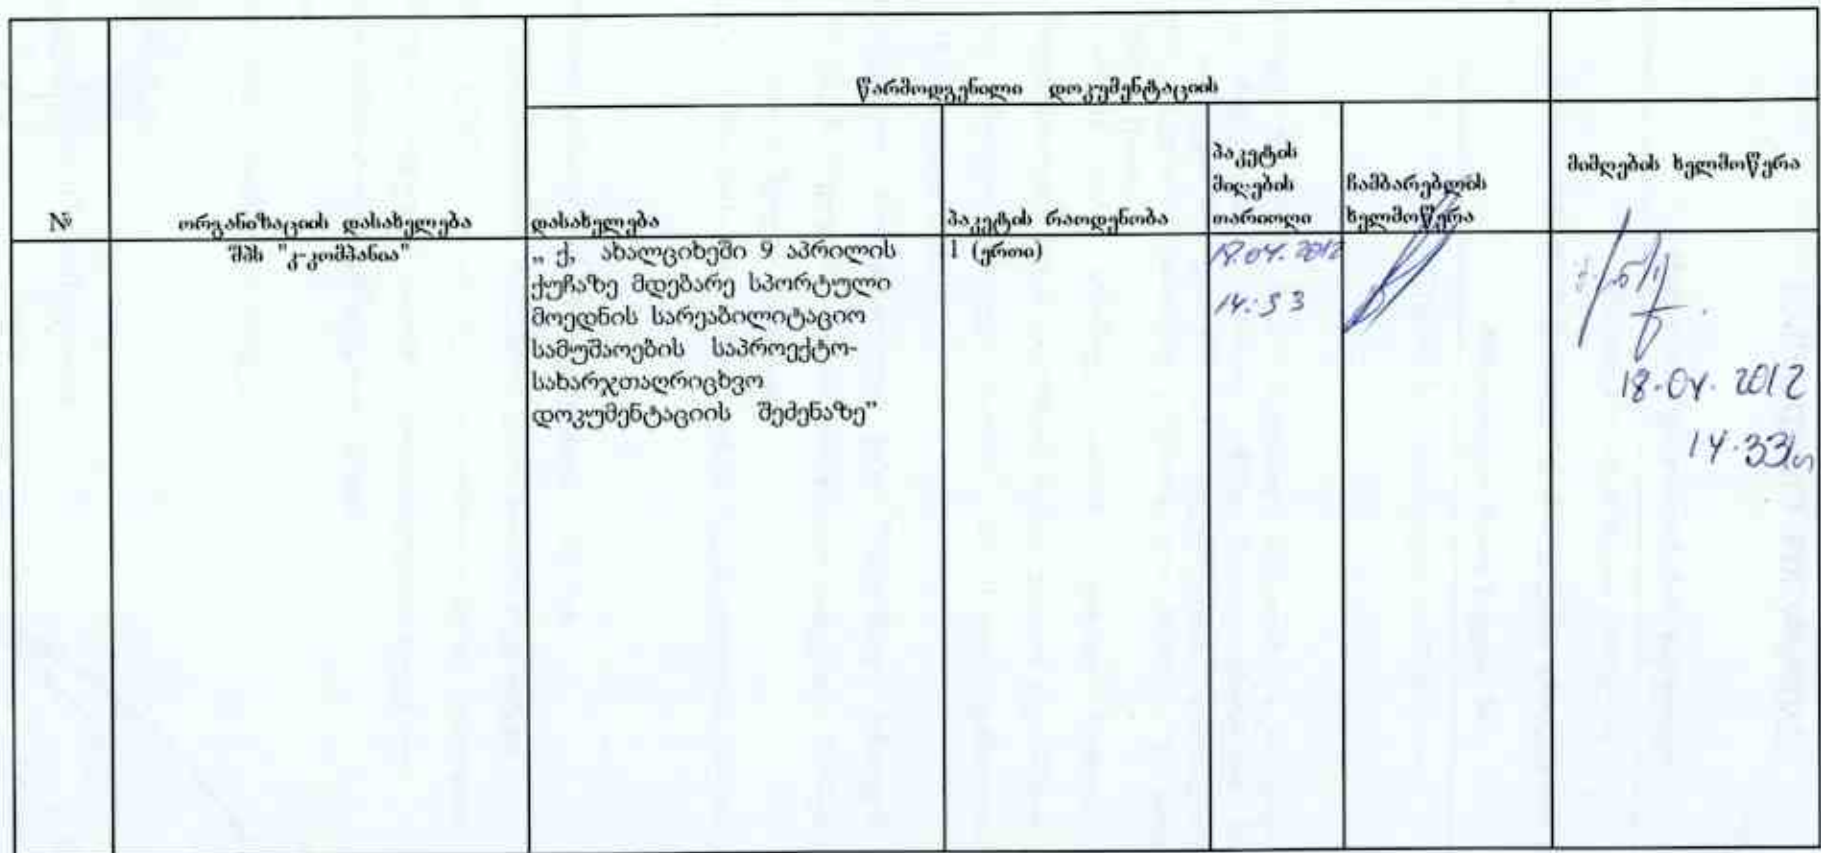 წარმოდგენილი დოკუმენტაციის
№
ორგანიზაციის დასახელება
დასახელება
პაკეტის რაოდენობა
პაკეტის
მიღების
თარიოღი
ჩამბარებლის
ხელმოწერა
მიმღების ხელმოწერა
შპს "კ-კომპანია"
„ ქ, ახალციხეში 9 აპრილის
ქუჩაზე მდებარე სპორტული
მოედნის სარეაბილიტაციო
სამუშაოების საპროექტო-
სახარჯთაღრიცხვო
დოკუმენტაციის შეძენაზე”
1 (ერთი)
18.04.2012
14:33
18.04.2012
14.33